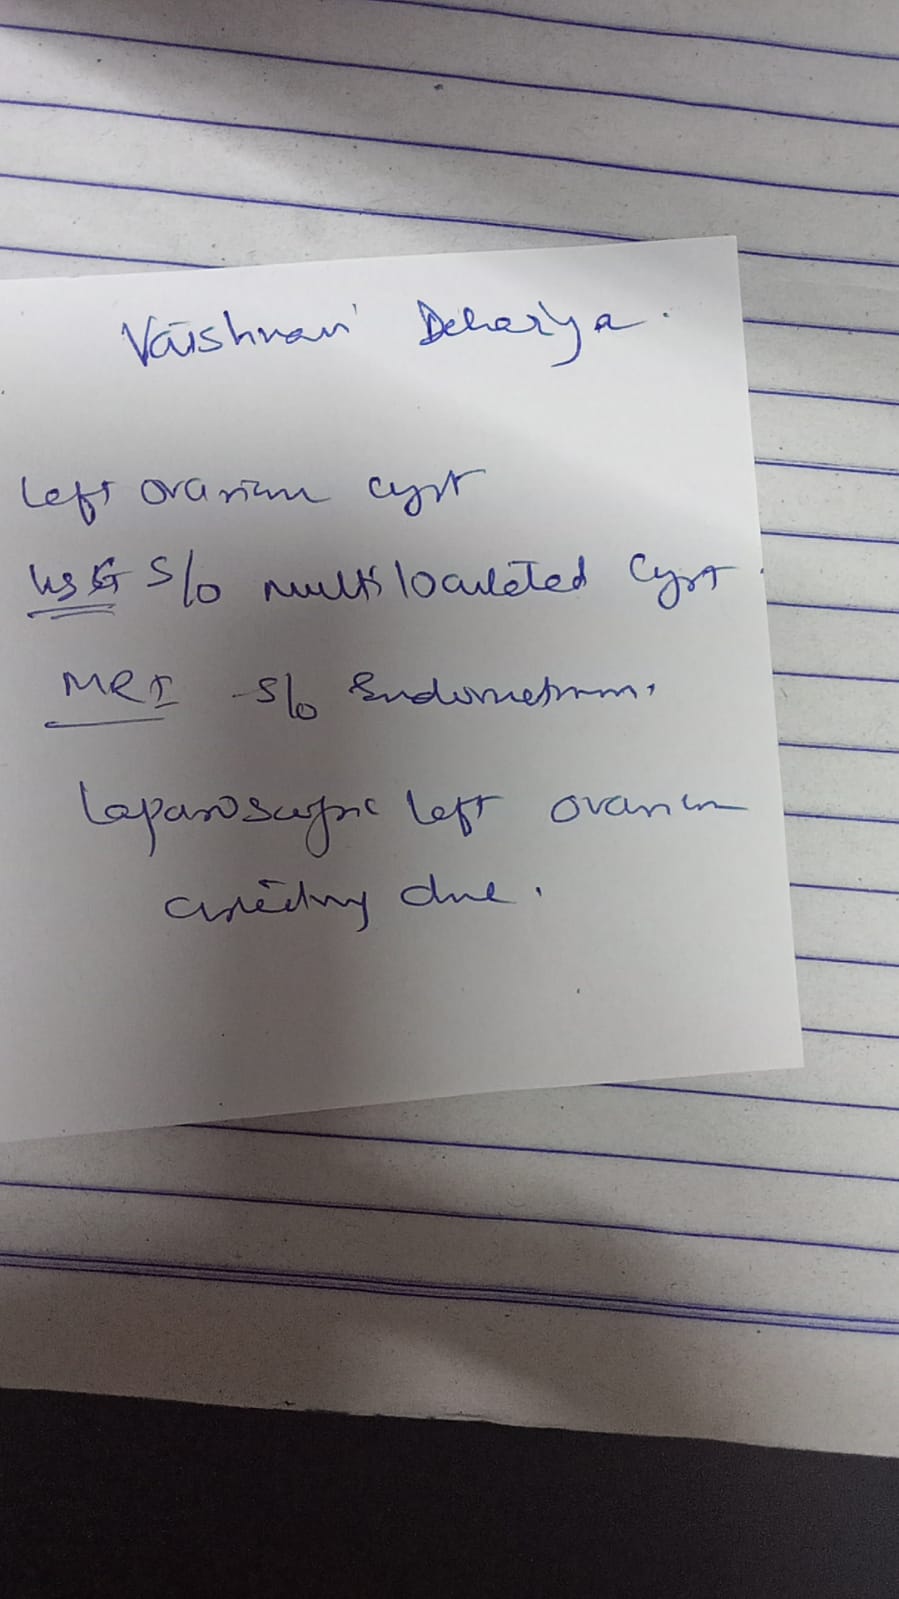 Vaishnavi Deharya.
Left ovarian cyst
USG S/o multiloculated Cyst.
MRI S/o
Laparoscopic left ovarian